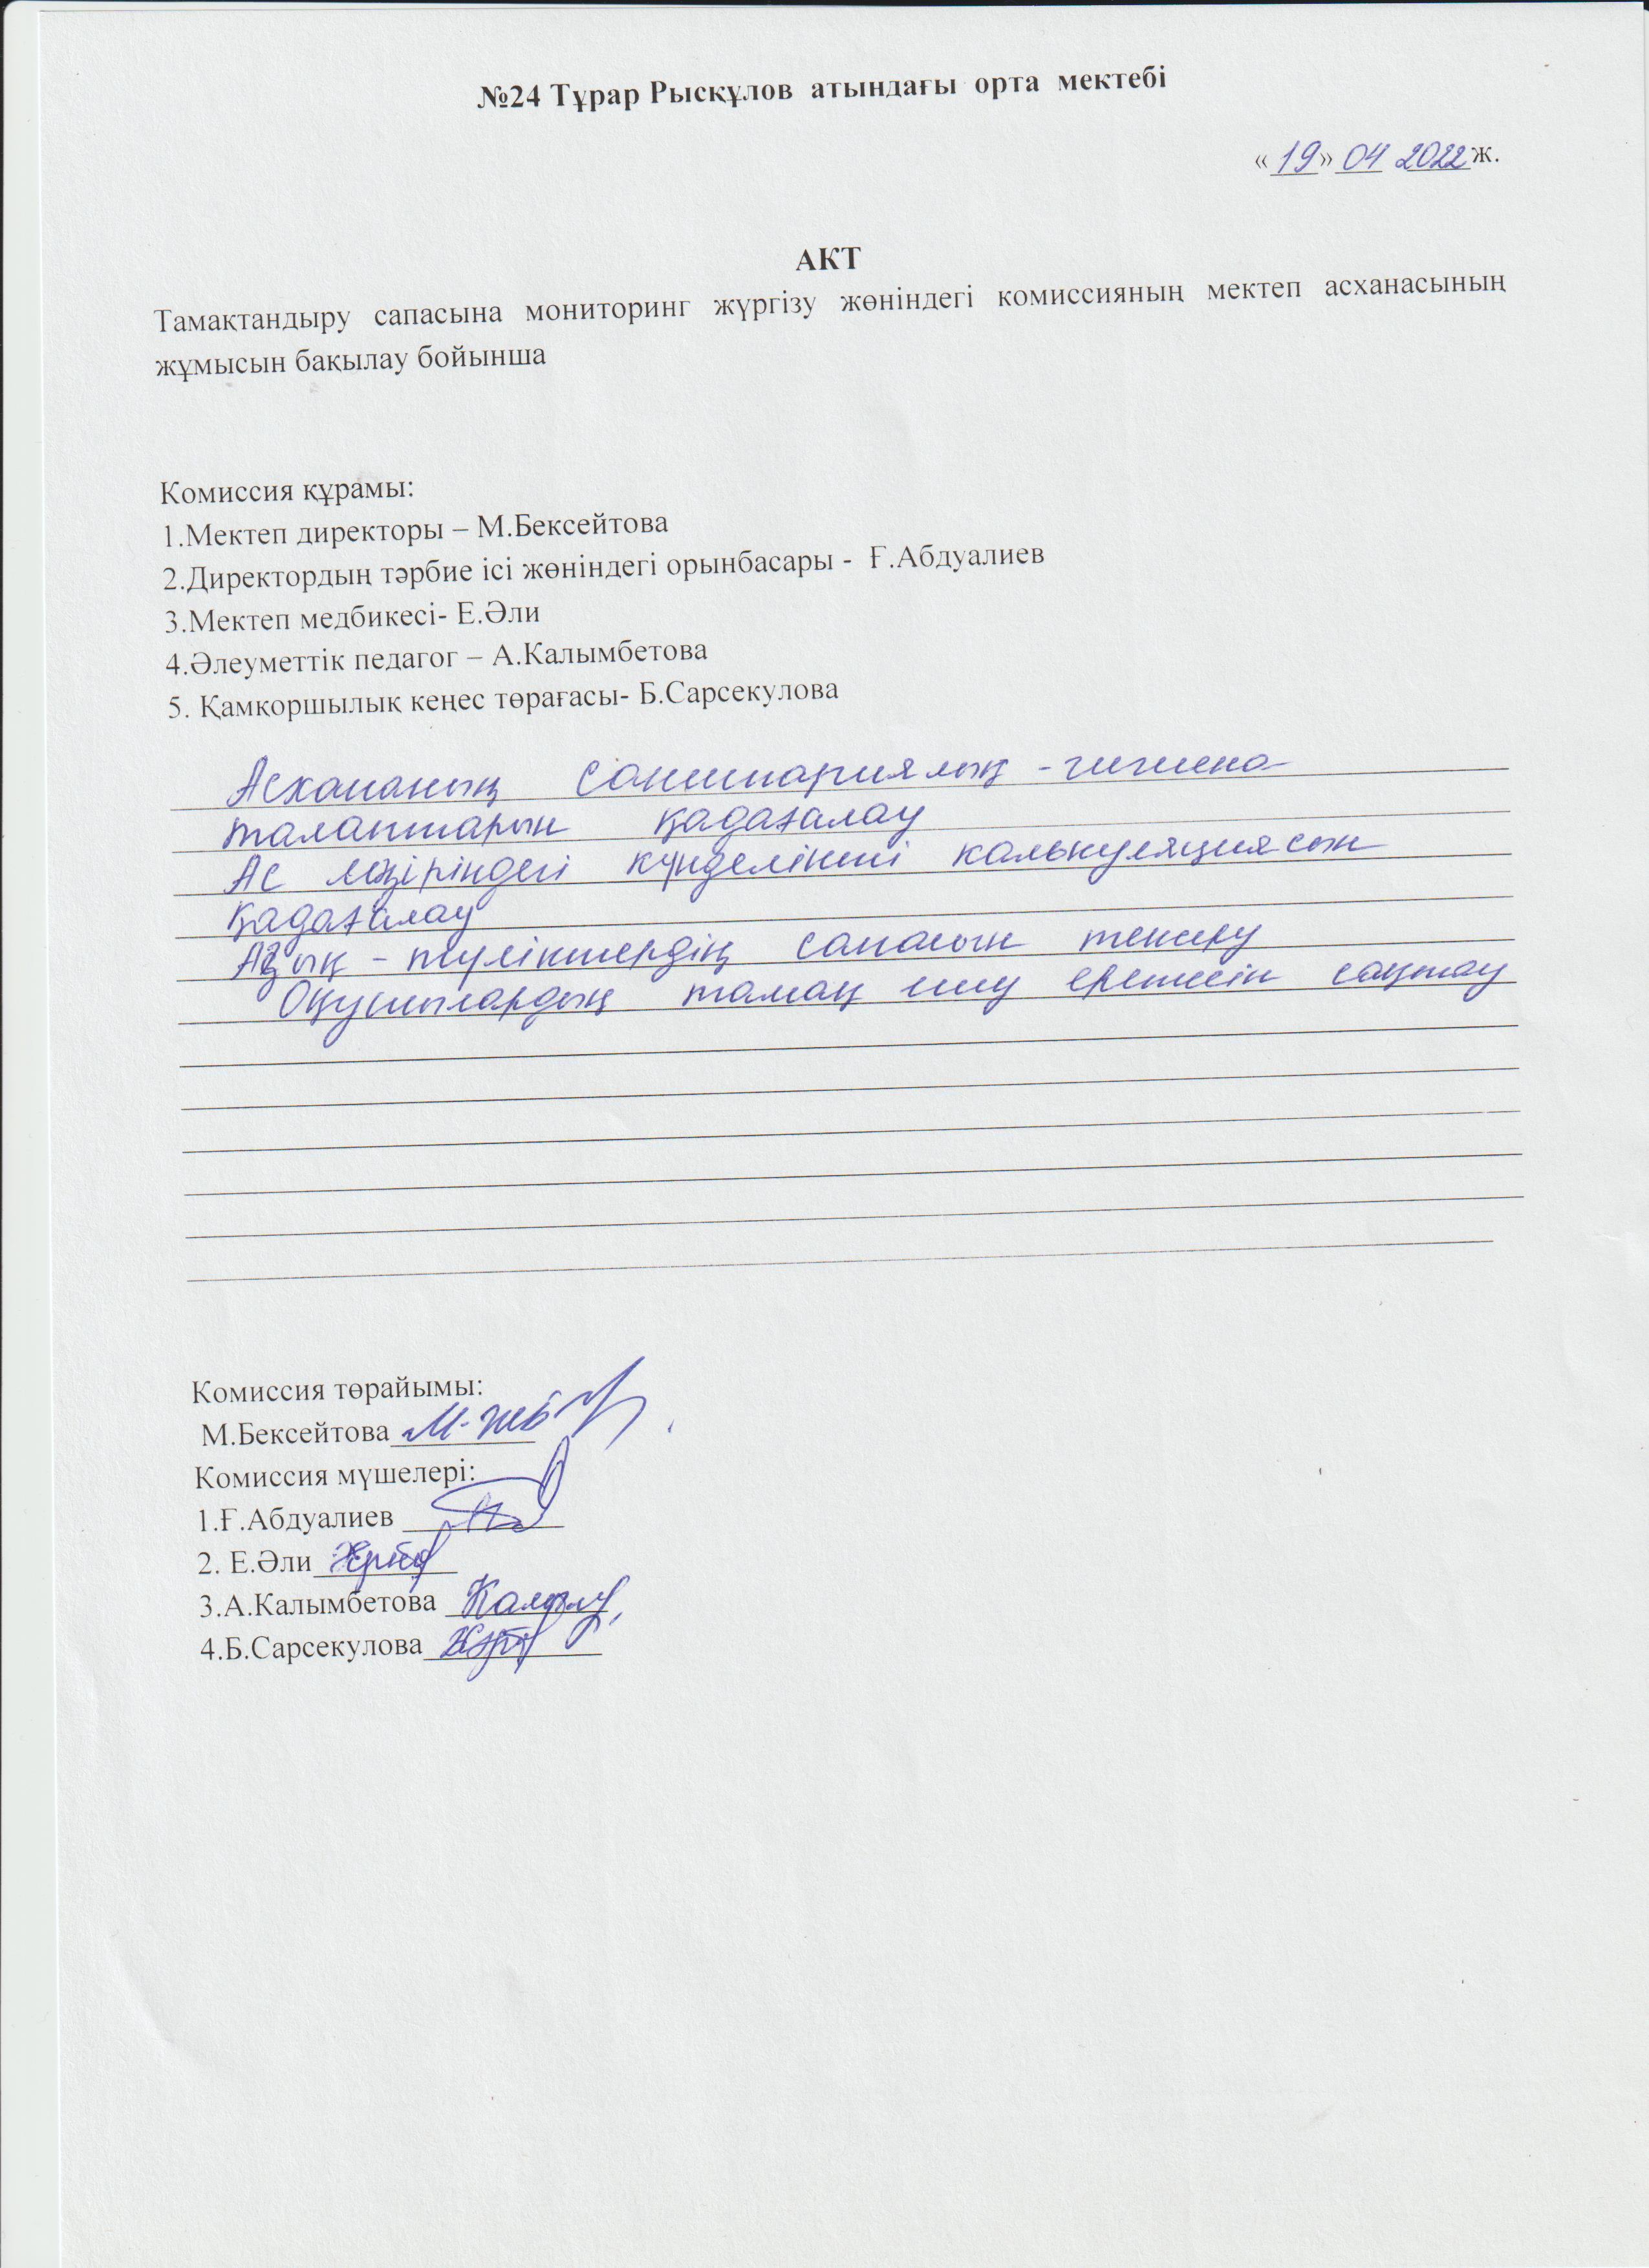 №24 Тұрар Рысқұлов атындағы орта мектебі
«19» 04 2022ж.
АКТ
Тамақтандыру сапасына мониторинг жүргізу жөніндегі комиссияның мектеп асханасының
жұмысын бақылау бойынша
Комиссия құрамы:
1.Мектеп директоры – М.Бексейтова
2.Директордың тәрбие ісі жөніндегі орынбасары - Ғ.Абдуалиев
3.Мектеп медбикесі- Е.Әли
4.Әлеуметтік педагог – А.Калымбетова
5. Қамқоршылық кеңес төрағасы- Б.Сарсекулова
Асхананың санитариялық - гигиена
талаптарын қадағалау
Ас мәзіріндегі күнделікті калькуляциясын
қадағалау
Азық - түліктердің сапасын тексеру
Оқушылардың тамақ ішу ережесін сақтау
Комиссия төрайымы:
М.Бексейтова
Комиссия мүшелері:
1.Ғ.Абдуалиев
2. Е.Әли
3.А.Калымбетова
4.Б.Сарсекулова